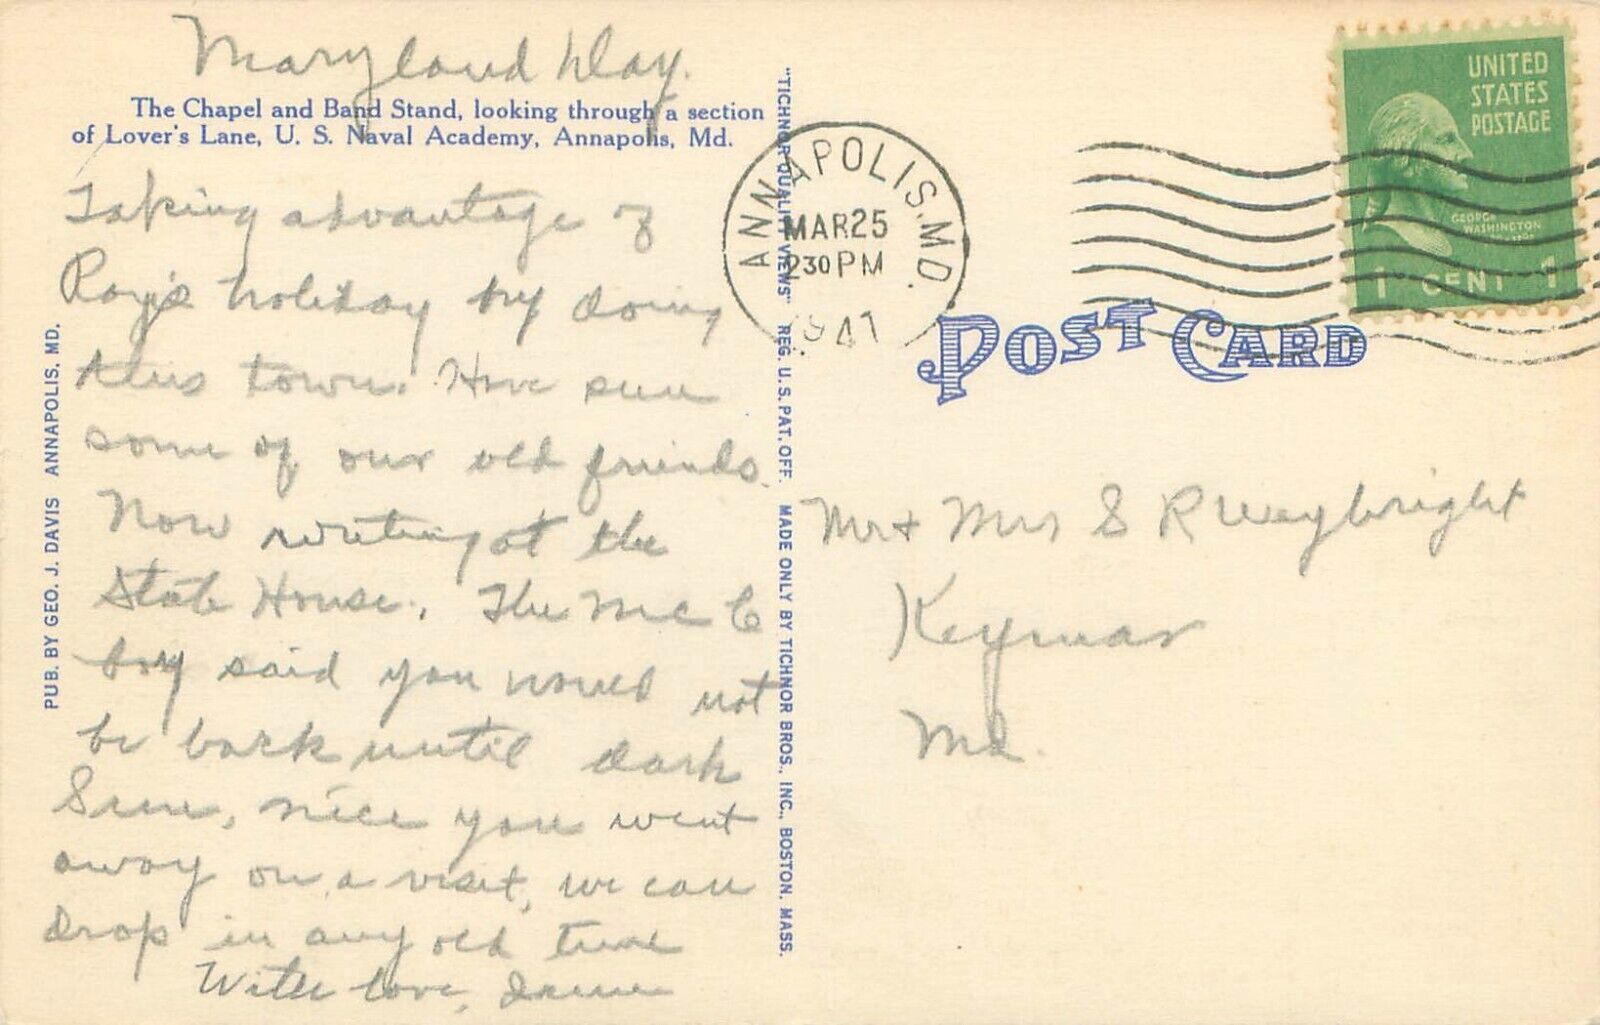 Maryland Day.
The Chapel and Band Stand, looking through a section
of Lover's Lane, U. S. Naval Academy, Annapolis, Md.
Taking advantage of
Roy's holiday by doing
this town. Have seen
some of our old friends.
Now writing at the
State House. The Mc C
boy said you would not
be back until dark
Sun, nice you went
away on a visit, we can
drop in any old time
With love,
PUB. BY GEO. J. DAVIS ANNAPOLIS, MD.
"TICHNOR QUALITY VIEWS" REG. U. S. PAT. OFF. MADE ONLY BY TICHNOR BROS., INC., BOSTON, MASS.
ANNAPOLIS, MD.
MAR 25
230 PM
1941
UNITED
STATES
POSTAGE
GEORGE
WASHINGTON
1 CENT 1
POST CARD
Mr + Mrs S R Weybright
Keymar
Md.